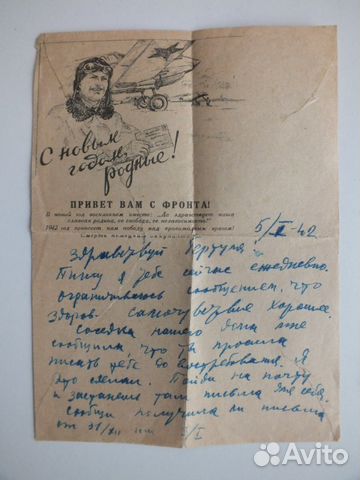 С новым
годом,
родные!
ПРИВЕТ ВАМ С ФРОНТА!
В новый год воскликнем вместе: „Да здравствует наша
славная родина, ее свобода, ее независимость!"
1942 год принесет нам победу над проклятым врагом!
Смерть немецким оккупантам!
5/I 42
Здравствуй Гертуля
Пишу я тебе сейчас ежедневно.
ограничиваюсь сообщением, что
здоров. самочувствие хорошее.
Соседка нашего дома мне
сообщила, что ты просила
писать тебе до востребования. Я
это сделал. Пойди на почту
и застанешь там письма для себя.
Сообщи получила ли письма
от 31/XII или /I
Avito